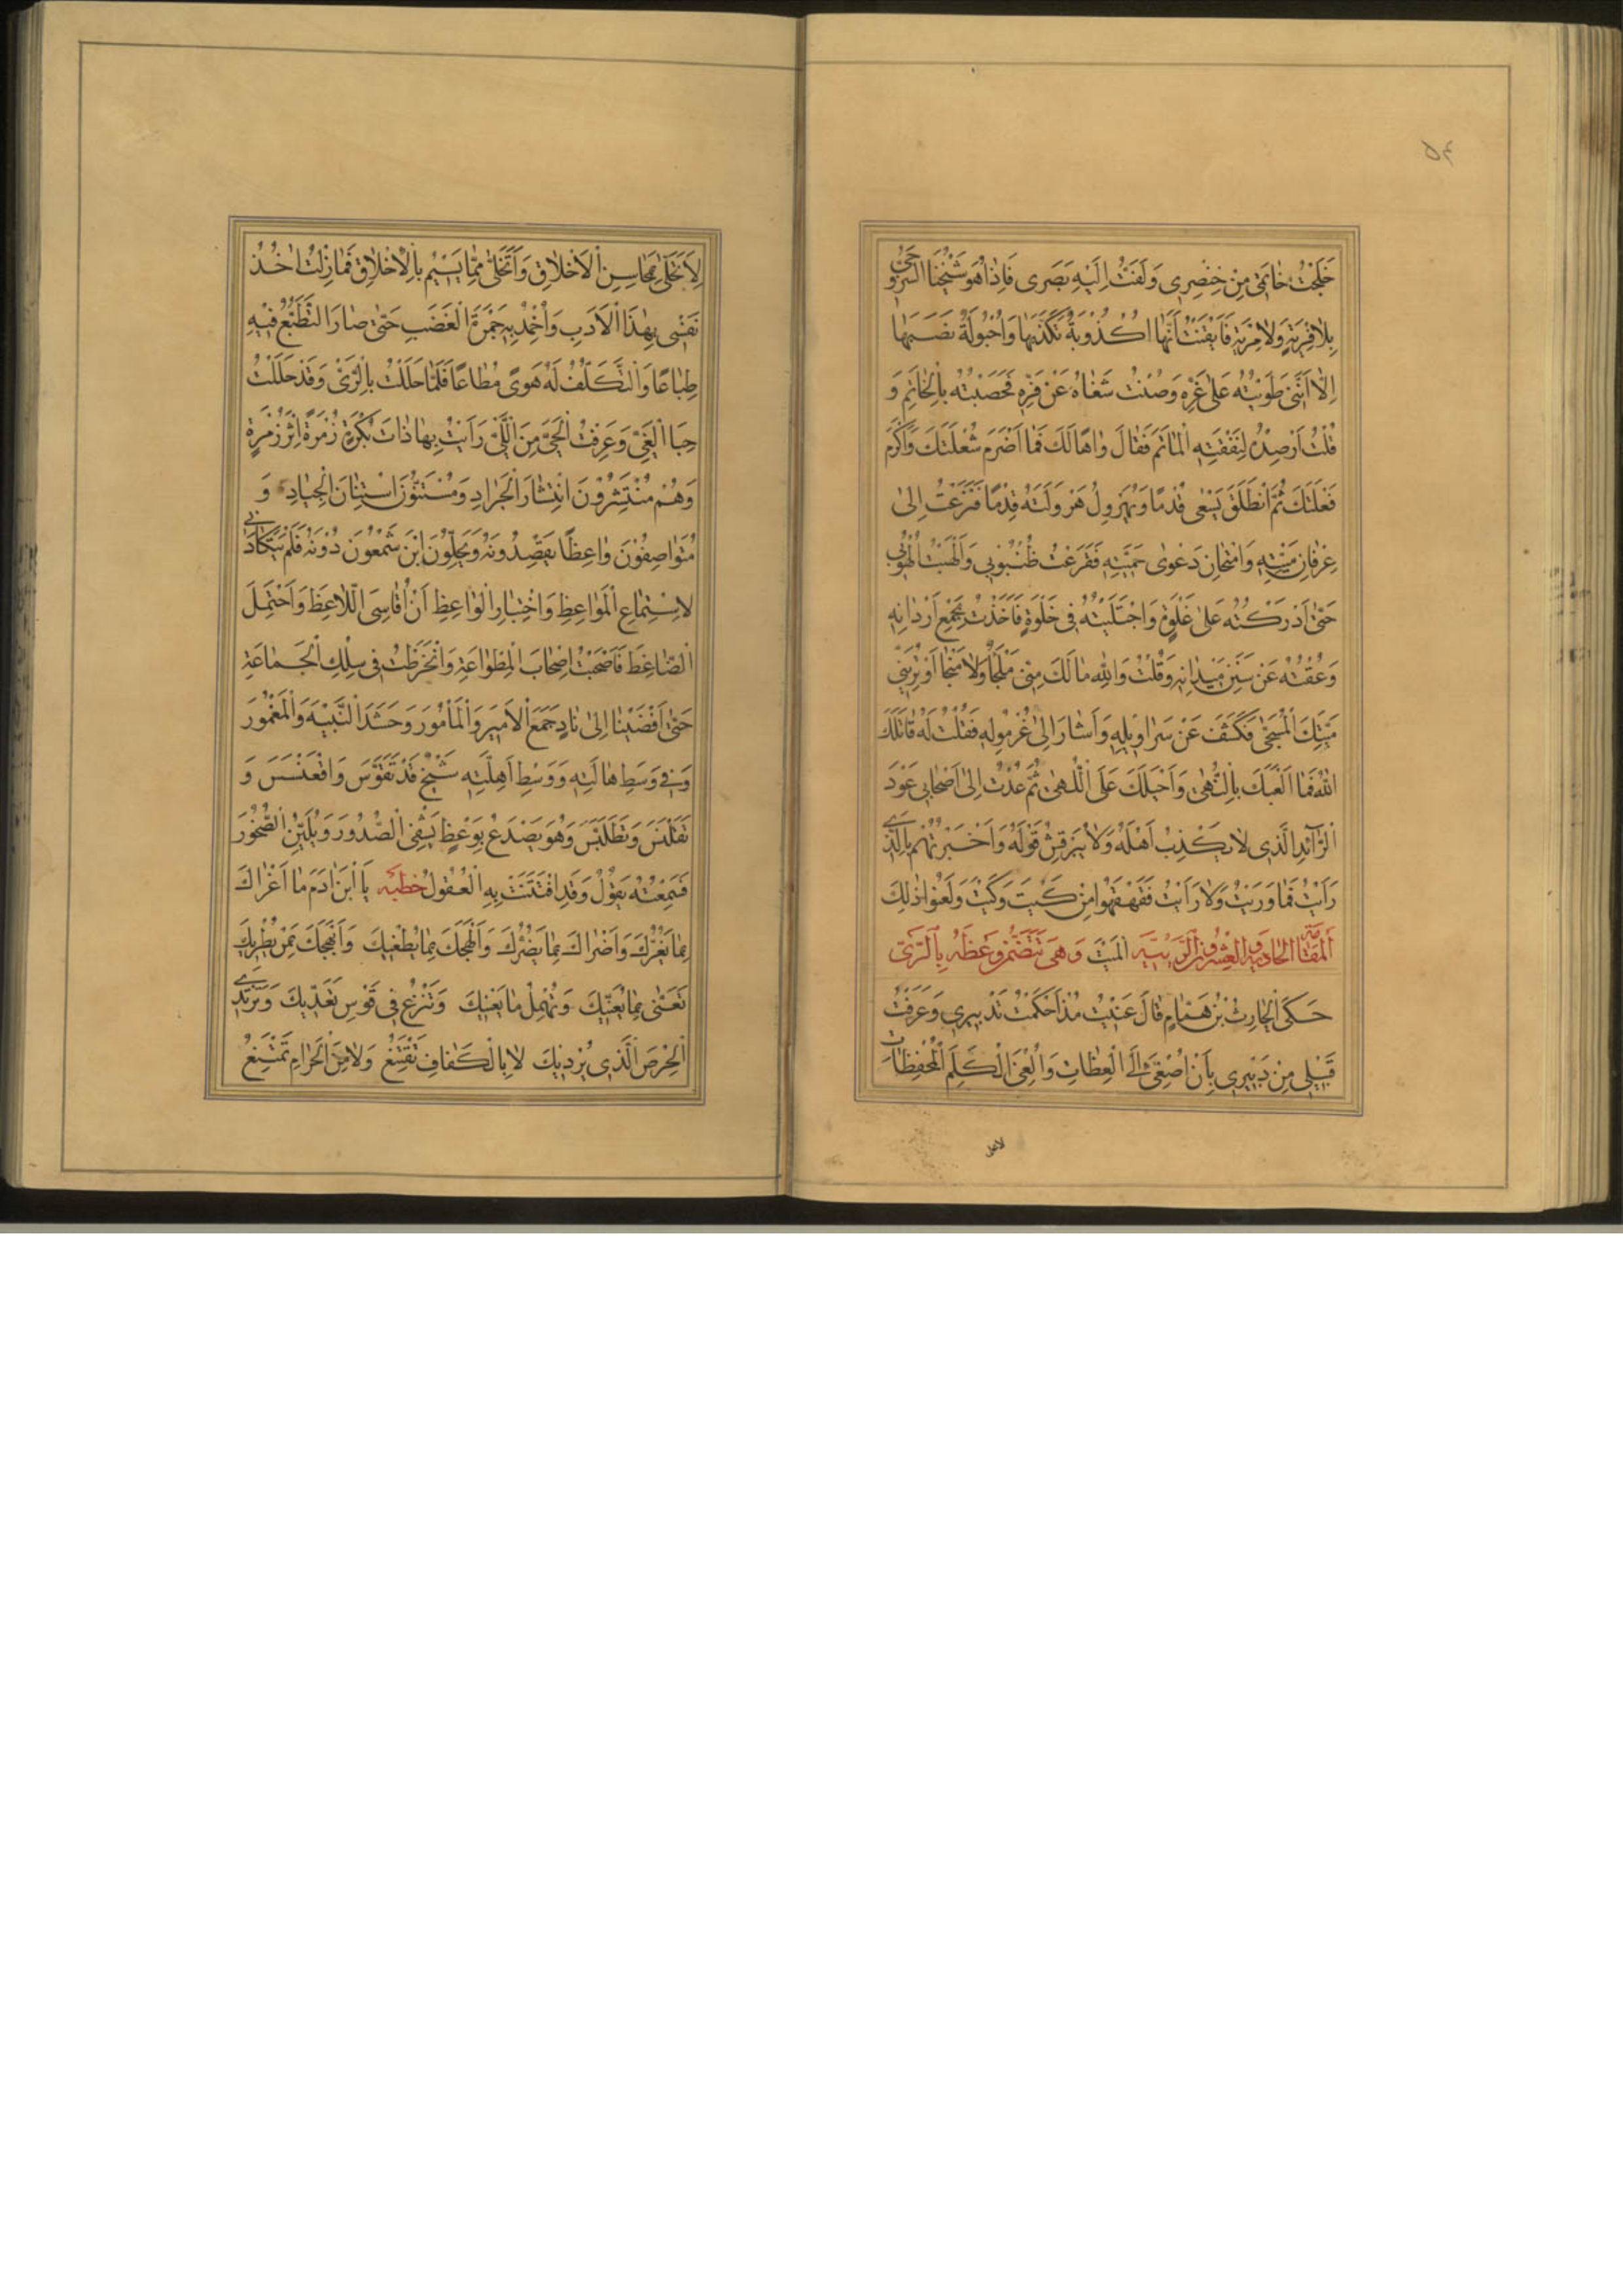 ٥٤
خَلَجْتُ خَاتَمِی مِنْ خِنْصِرِی وَلَفَتُّ اِلَیْهِ بَصَرِی فَاِذَا هُوَ شَیْخُنَا السَّرُوجِیُّ
بِلَا فِرْیَةٍ وَلَا مِرْیَةٍ فَاَیْقَنْتُ اَنَّهَا اُکْذُوبَةٌ تَکَذَّبَهَا وَاُحْبُولَةٌ نَصَبَهَا
اِلَّا اَنَّنِی طَوَیْتُهُ عَلٰی غَرِّهِ وَصُنْتُ شَغَاهُ عَنْ فَرِّهِ فَحَصَبْتُهُ بِالْخَاتَمِ وَ
قُلْتُ اَرْصِدْهُ لِنَفَقَتِهِ الْمَاتَمِ فَقَالَ وَاهًا لَكَ فَمَا اَضْرَمَ شُعْلَتَكَ وَاَکْرَمَ
فَعْلَتَكَ ثُمَّ انْطَلَقَ یَسْعٰی قُدُمًا وَیُهَرْوِلُ هَرْوَلَتَهُ قِدْمًا فَنَزَعْتُ اِلٰی
عِرْفَانِ مَیْتِهِ وَامْتِحَانِ دَعْوٰی حَمِیَّتِهِ فَقَرَعْتُ ظُنْبُوبِی وَاَلْهَبْتُ اُلْهُوبِی
حَتّٰی اَدْرَکْتُهُ عَلٰی غَلْوَةٍ وَاجْتَلَیْتُهُ فِی خَلْوَةٍ فَاَخَذْتُ بِجُمْعِ اَرْدَانِهِ
وَعُقْتُهُ عَنْ سَنَنِ مَیْدَانِهِ وَقُلْتُ وَاللّٰهِ مَا لَكَ مِنِّی مَلْجَأٌ وَلَا مَنْجَا اَوْ تُرِیَنِی
مَیِّتَكَ الْمُسَجّٰی فَکَشَفَ عَنْ سَرَاوِیلِهِ وَاَشَارَ اِلٰی غُرْمُولِهِ فَقُلْتُ لَهُ قَاتَلَكَ
اللّٰهُ فَمَا اَلْعَبَكَ بِالنُّهٰی وَاَحْیَلَكَ عَلَی اللُّهٰی ثُمَّ عُدْتُ اِلٰی اَصْحَابِی عَوْدَ
الرَّآئِدِ الَّذِی لَا یَکْذِبُ اَهْلَهُ وَلَا یُبَرْقِشُ قَوْلَهُ وَاَخْبَرْتُهُمْ بِالَّذِی
رَاَیْتُ فَمَا وَرَیْتُ وَلَا رَاَیْتُ فَقَهْقَهُوا مِنْ کَیْتَ وَکَیْتَ وَلَعَنُوا ذٰلِكَ
الْمَیْتَ اَلْمَقَامَةُ الْحَادِیَةُ وَالْعِشْرُونَ وَهِیَ تَتَضَمَّنُ وَعْظَهُ بِالرَّیِّ
حَکَی الْحَارِثُ بْنُ هَمَّامٍ قَالَ عَنَیْتُ مُذْ اَحْکَمْتُ تَدْبِیرِی وَعَرَفْتُ
قَبِیلِی مِنْ دَبِیرِی بِاَنْ اُصْغِیَ اِلَی الْعِظَاتِ وَاُلْغِیَ الْکَلِمَ الْمُحْفِظَاتِ
لِاَتَحَلّٰی بِمَحَاسِنِ الْاَخْلَاقِ وَاَتَخَلّٰی مِمَّا یَسِمُ بِالْاِخْلَاقِ فَمَا زِلْتُ اٰخُذُ
نَفْسِی بِهٰذَا الْاَدَبِ وَاُخْمِدُ بِهِ جَمْرَةَ الْغَضَبِ حَتّٰی صَارَ التَّطَبُّعُ فِیْهِ
طِبَاعًا وَالتَّکَلُّفُ لَهُ هَوًی مُطَاعًا فَلَمَّا حَلَلْتُ بِالرَّیِّ وَقَدْ حَلَلْتُ
حِبَا الْغَیِّ وَعَرَفْتُ الْحَیَّ مِنَ اللَّیِّ رَاَیْتُ بِهَا ذَاتَ بُکْرَةٍ زُمْرَةً اِثْرَ زُمْرَةٍ
وَهُمْ مُنْتَشِرُوْنَ انْتِشَارَ الْجَرَادِ وَمُسْتَنُّوْنَ اسْتِنَانَ الْجِیَادِ وَ
مُتَوَاصِفُوْنَ وَاعِظًا یَقْصِدُونَهُ وَیُحِلُّوْنَ ابْنَ شَمْعُوْنَ دُوْنَهُ فَلَمْ یَتَکَاَّدْنِی
لِاسْتِمَاعِ الْمَوَاعِظِ وَاخْتِبَارِ الْوَاعِظِ اَنْ اُقَاسِیَ اللَّاغِطَ وَاَحْتَمِلَ
الضَّاغِطَ فَاَصْحَبْتُ اِصْحَابَ الْمِطْوَاعَةِ وَانْخَرَطْتُ فِی سِلْكِ الْجَمَاعَةِ
حَتّٰی اَفْضَیْنَا اِلٰی نَادٍ جَمَعَ الْاَمِیرَ وَالْمَاْمُورَ وَحَشَدَ النَّبِیْهَ وَالْمَغْمُورَ
وَفِی وَسَطِ هَالَتِهِ وَوَسْطِ اَهِلَّتِهِ شَیْخٌ قَدْ تَقَوَّسَ وَاقْعَنْسَسَ وَ
تَقَلْنَسَ وَتَطَلَّسَ وَهُوَ یَصْدَعُ بِوَعْظٍ یَشْفِی الصُّدُورَ وَیُلَیِّنُ الصُّخُورَ
فَسَمِعْتُهُ یَقُوْلُ وَقَدِ افْتَتَنَتْ بِهِ الْعُقُولُ خطبه یَا ابْنَ اٰدَمَ مَا اَغْرَاكَ
بِمَا یَغُرُّكَ وَاَضْرَاكَ بِمَا یَضُرُّكَ وَاَلْهَجَكَ بِمَا یُطْغِیْكَ وَاَبْهَجَكَ بِمَنْ یُطْرِیْكَ
تُعْنٰی بِمَا یُعَنِّیْكَ وَتُهْمِلُ مَا یَعْنِیْكَ وَتَنْزِعُ فِی قَوْسِ تَعَدِّیْكَ وَتَرْتَدِی
الْحِرْصَ الَّذِی یُرْدِیْكَ لَا بِالْکَفَافِ تَقْتَنِعُ وَلَا مِنَ الْحَرَامِ تَمْتَنِعُ